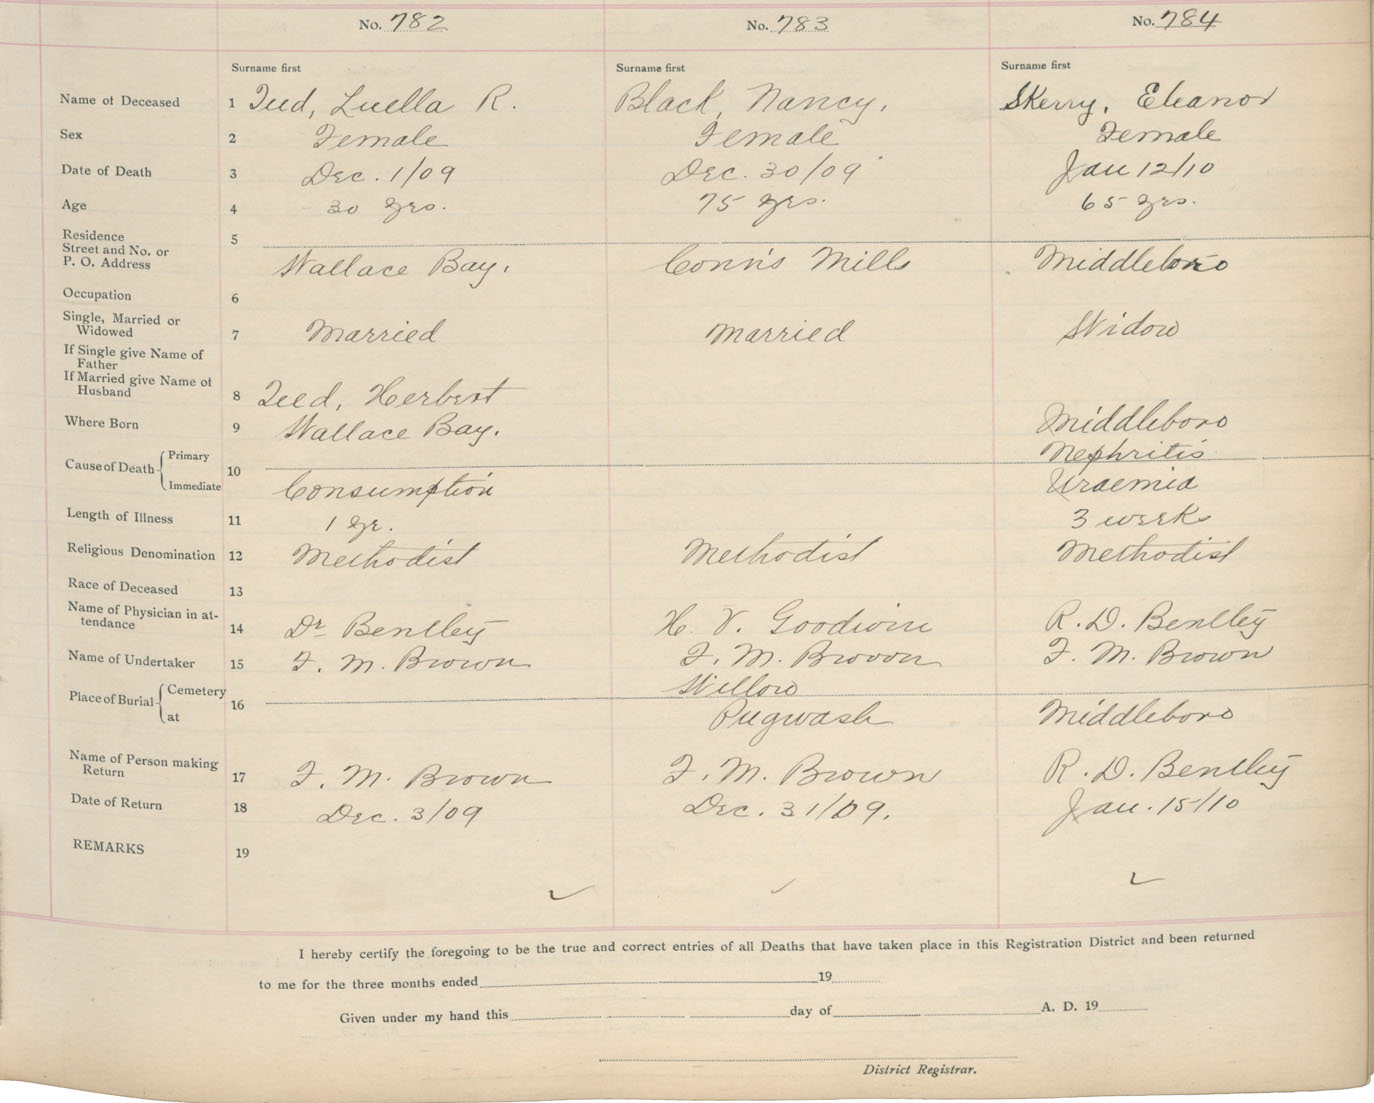 No. 782 No. 783 No. 784
Surname first Surname first Surname first
Name of Deceased 1 Teed, Luella R. Black, Nancy. Skerry, Eleanor
Sex 2 Female Female Female
Date of Death 3 Dec. 1/09 Dec. 30/09 Jan 12/10
Age 4 30 yrs. 75 yrs. 65 yrs.
Residence
Street and No. or 5
P. O. Address Wallace Bay. Conn's Mills Middleboro
Occupation 6
Single, Married or
Widowed 7 Married Married Widow
If Single give Name of
Father
If Married give Name of
Husband 8 Teed, Herbert
Where Born 9 Wallace Bay. Middleboro
Cause of Death Primary 10 Nephritis
Immediate Consumption Uraemia
Length of Illness 11 1 yr. 3 weeks
Religious Denomination 12 Methodist Methodist Methodist
Race of Deceased 13
Name of Physician in at-
tendance 14 Dr Bentley H. V. Goodwin R. D. Bentley
Name of Undertaker 15 F. M. Brown F. M. Brown F. M. Brown
Place of Burial Cemetery 16 Willow
at Pugwash Middleboro
Name of Person making
Return 17 F. M. Brown F. M. Brown R. D. Bentley
Date of Return 18 Dec. 3/09 Dec. 31/09. Jan. 15/10
REMARKS 19
I hereby certify the foregoing to be the true and correct entries of all Deaths that have taken place in this Registration District and been returned
to me for the three months ended 19
Given under my hand this day of A. D. 19
District Registrar.